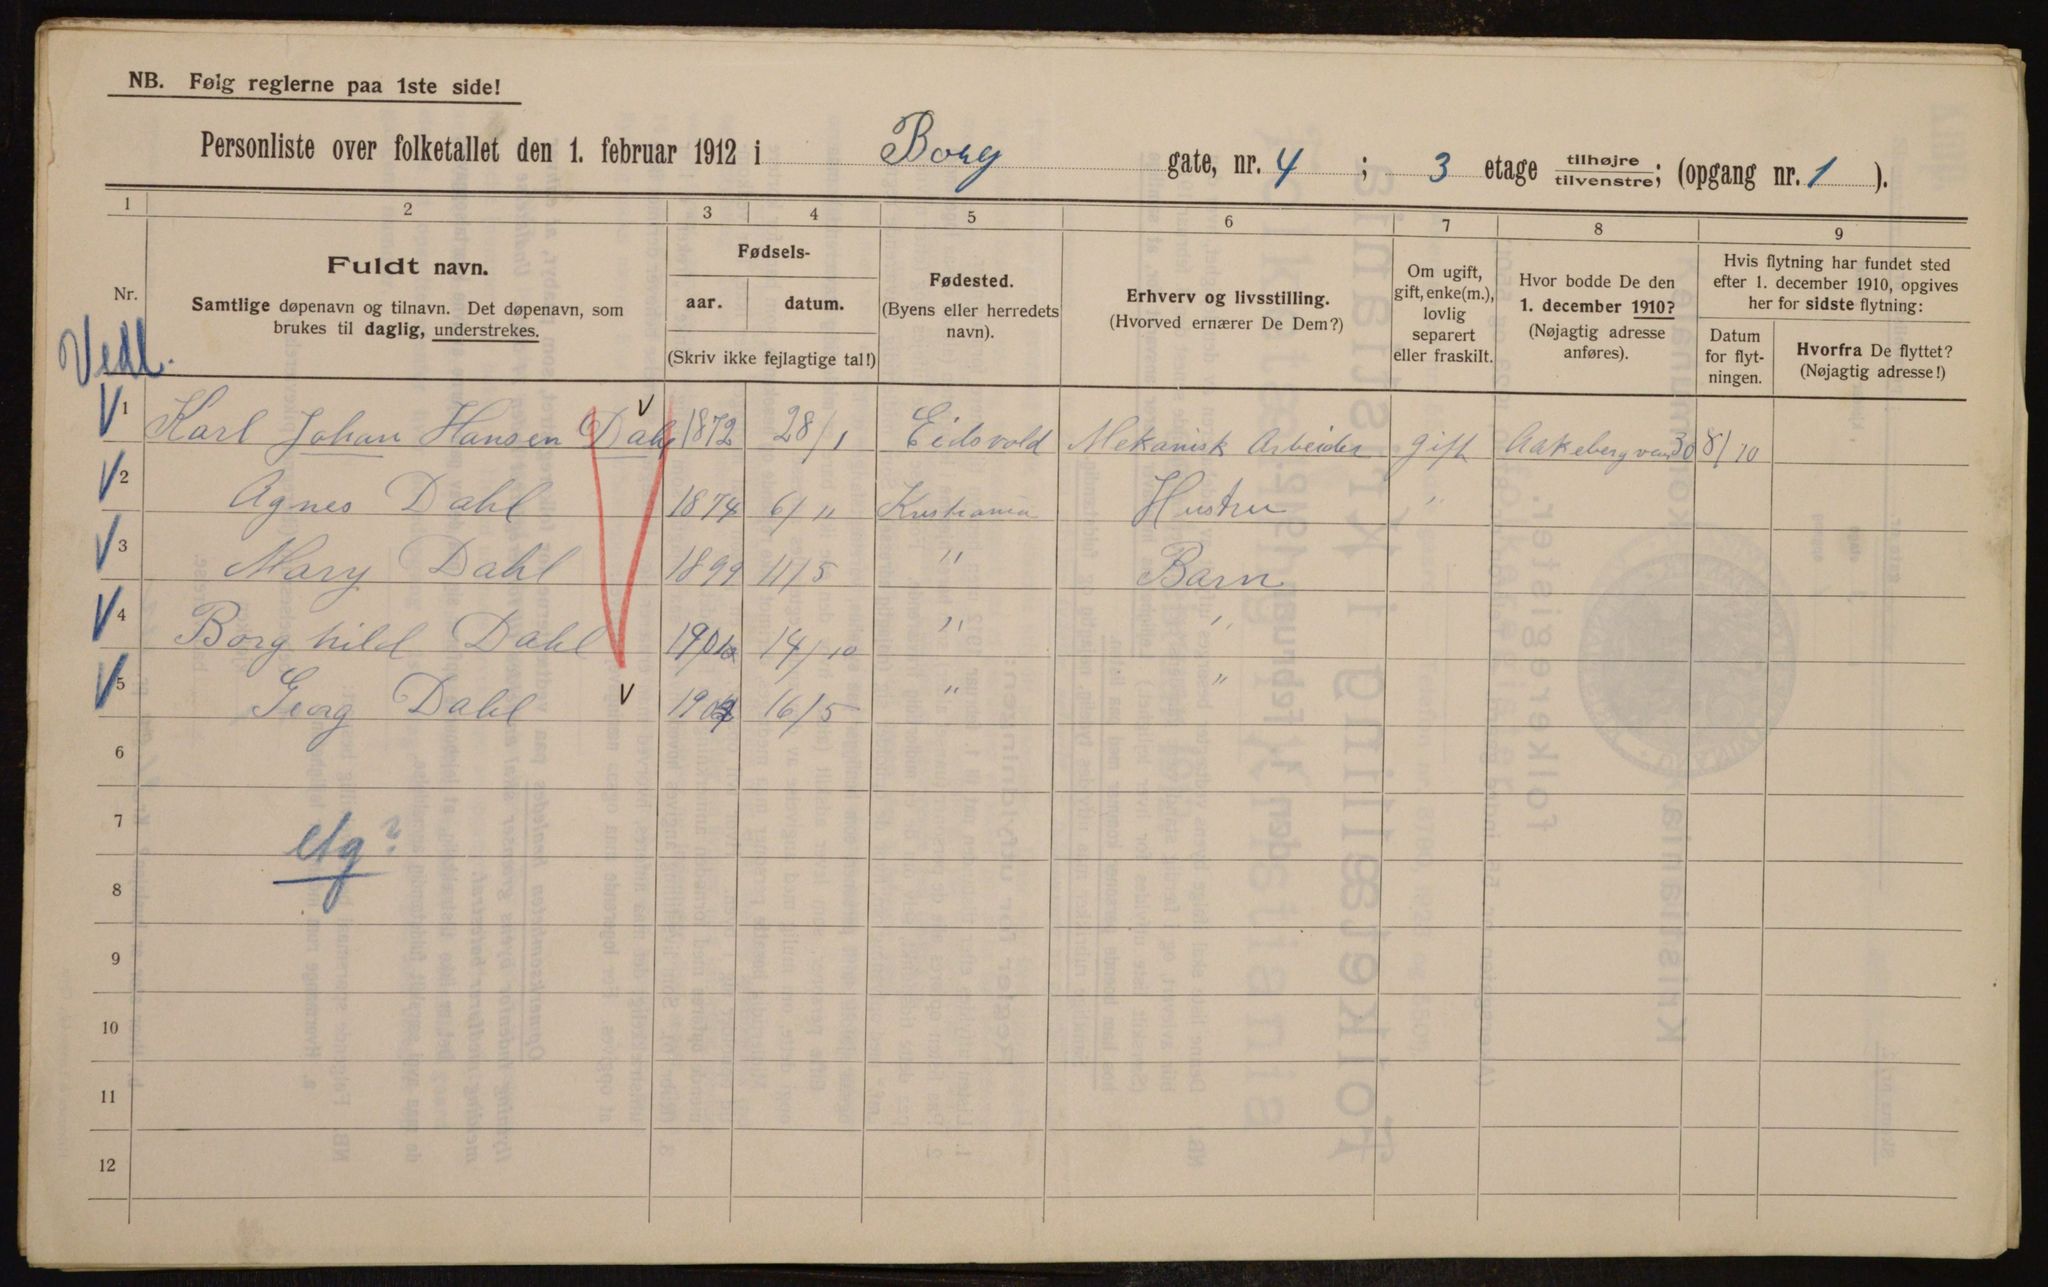 NB. Følg reglerne paa 1ste side!
Personliste over folketallet den 1. februar 1912 i Borg gate, nr. 4 ; 3 etage tilhøjre tilvenstre; (opgang nr. 1 ).
1 2 3 4 5 6 7 8 9
Nr.
Fuldt navn.
Samtlige døpenavn og tilnavn. Det døpenavn, som
brukes til daglig, understrekes.
Fødsels-
aar. datum.
(Skriv ikke fejlagtige tal!)
Fødested.
(Byens eller herredets
navn).
Erhverv og livsstilling.
(Hvorved ernærer De Dem?)
Om ugift,
gift, enke(m.),
lovlig
separert
eller fraskilt.
Hvor bodde De den
1. december 1910?
(Nøjagtig adresse
anføres).
Hvis flytning har fundet sted
efter 1. december 1910, opgives
her for sidste flytning:
Datum
for flyt-
ningen.
Hvorfra De flyttet?
(Nøjagtig adresse!)
Vedl.
V 1 Karl Johan Hansen Dahl V 1872 28/1 Eidsvold Mekanisk Arbeider gift Aakebergveien 30 8/10
V 2 Agnes Dahl 1874 6/11 Kristiania Hustru "
V 3 Mary Dahl 1899 11/5 " Barn
V 4 Borghild Dahl 14/10 " "
V 5 Georg Dahl V 16/5 " "
6
7
8
9
10
11
12